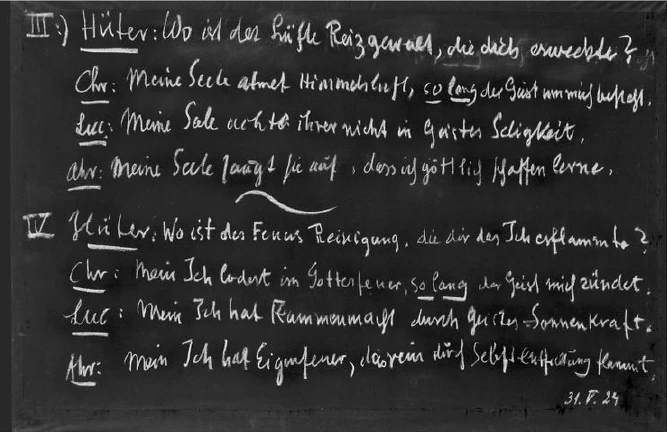 III:) Hüter: Wo ist der Lüfte Reizgewalt, die dich erweckte?
Chr: Meine Seele atmet Himmelsluft, so lang der Geist um mich besteht.
Luc: Meine Seele achtet ihrer nicht in Geistes Seligkeit.
Ahr: Meine Seele saugt sie auf, dass ich göttlich schaffen lerne.
IV Hüter: Wo ist des Feuers Reinigung, die dir das Ich erflammte?
Chr: Mein Ich lodert im Gottesfeuer, so lang der Geist mich zündet.
Luc: Mein Ich hat Flammenmacht durch Geistes-Sonnenkraft.
Ahr: Mein Ich hat Eigenfeuer, das rein durch Selbstentfaltung flammt.
31. V. 24